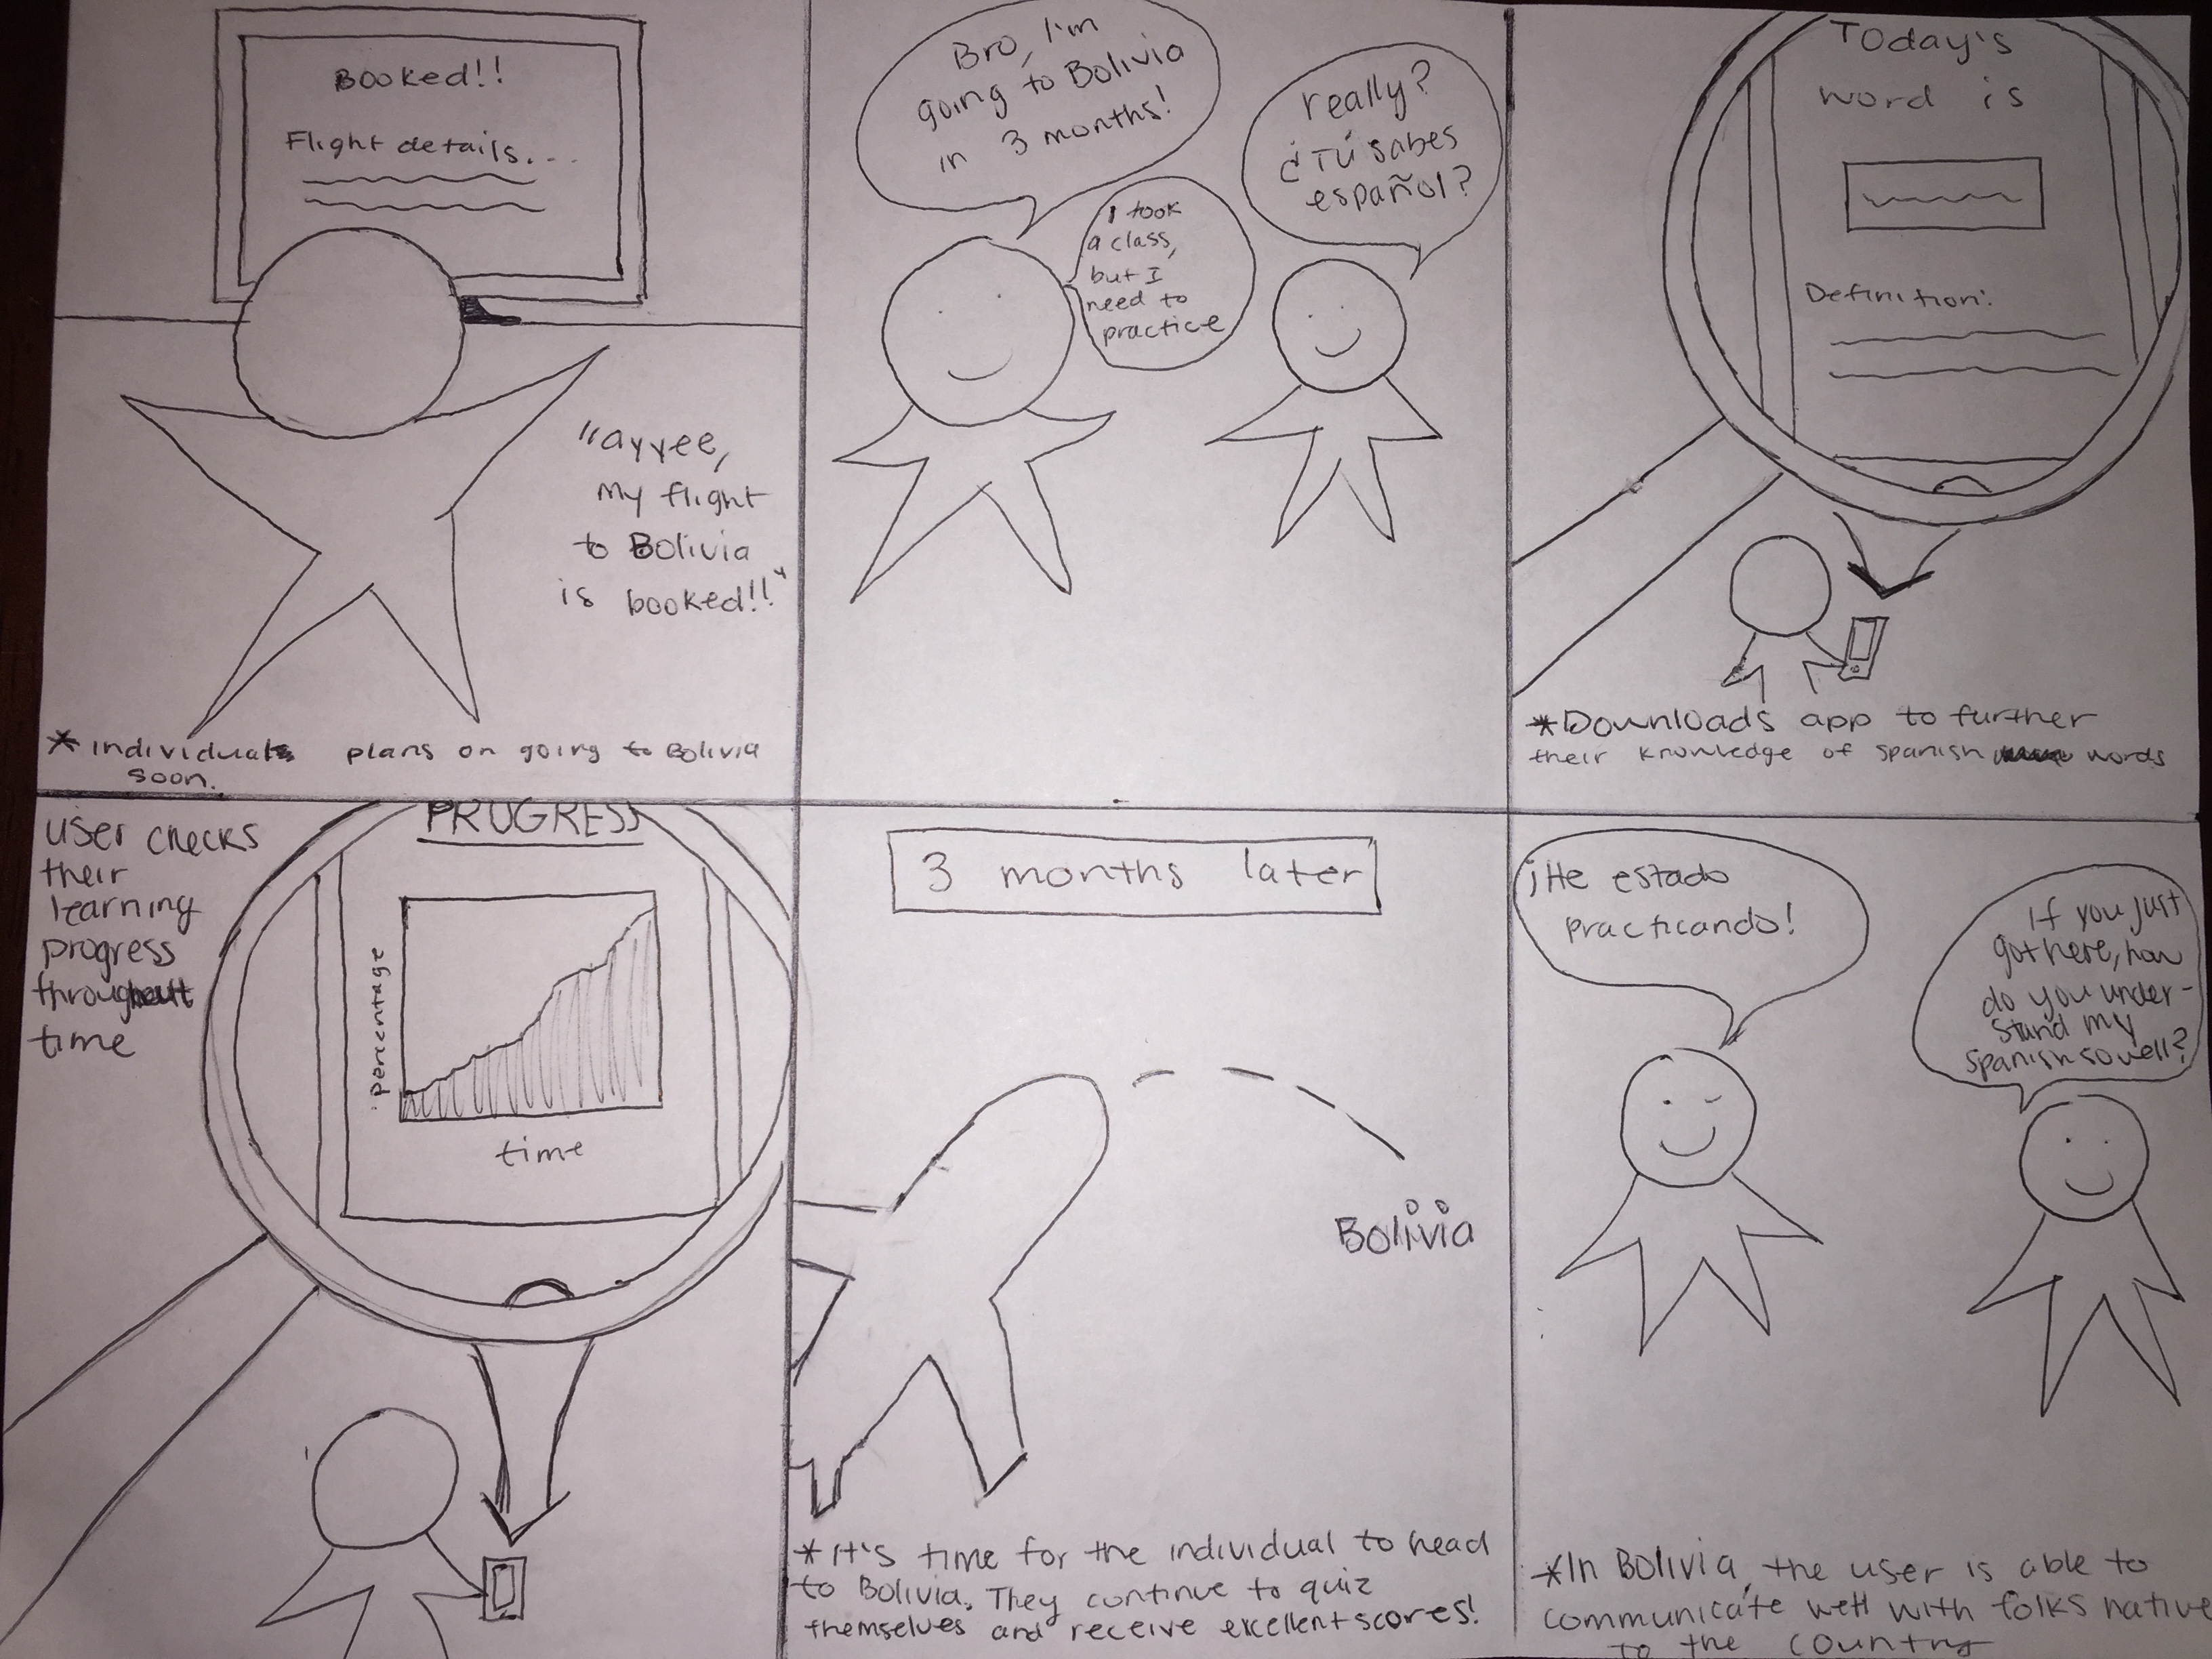 Booked!!
Flight details...
"ayyee,
my flight
to Bolivia
is booked!!"
*individual plans on going to Bolivia
soon.
Bro, I'm
going to Bolivia
in 3 months!
I took
a class,
but I
need to
practice
really?
¿Tú sabes
español?
Today's
word is
Definition:
*Downloads app to further
their knowledge of spanish words
User checks
their
learning
progress
throughout
time
PROGRESS
percentage
time
3 months later
Bolivia
*It's time for the individual to head
to Bolivia. They continue to quiz
themselves and receive excellent scores!
¡He estado
practicando!
If you just
got here, how
do you under-
stand my
spanish so well?
*In Bolivia the user is able to
communicate well with folks native
to the country